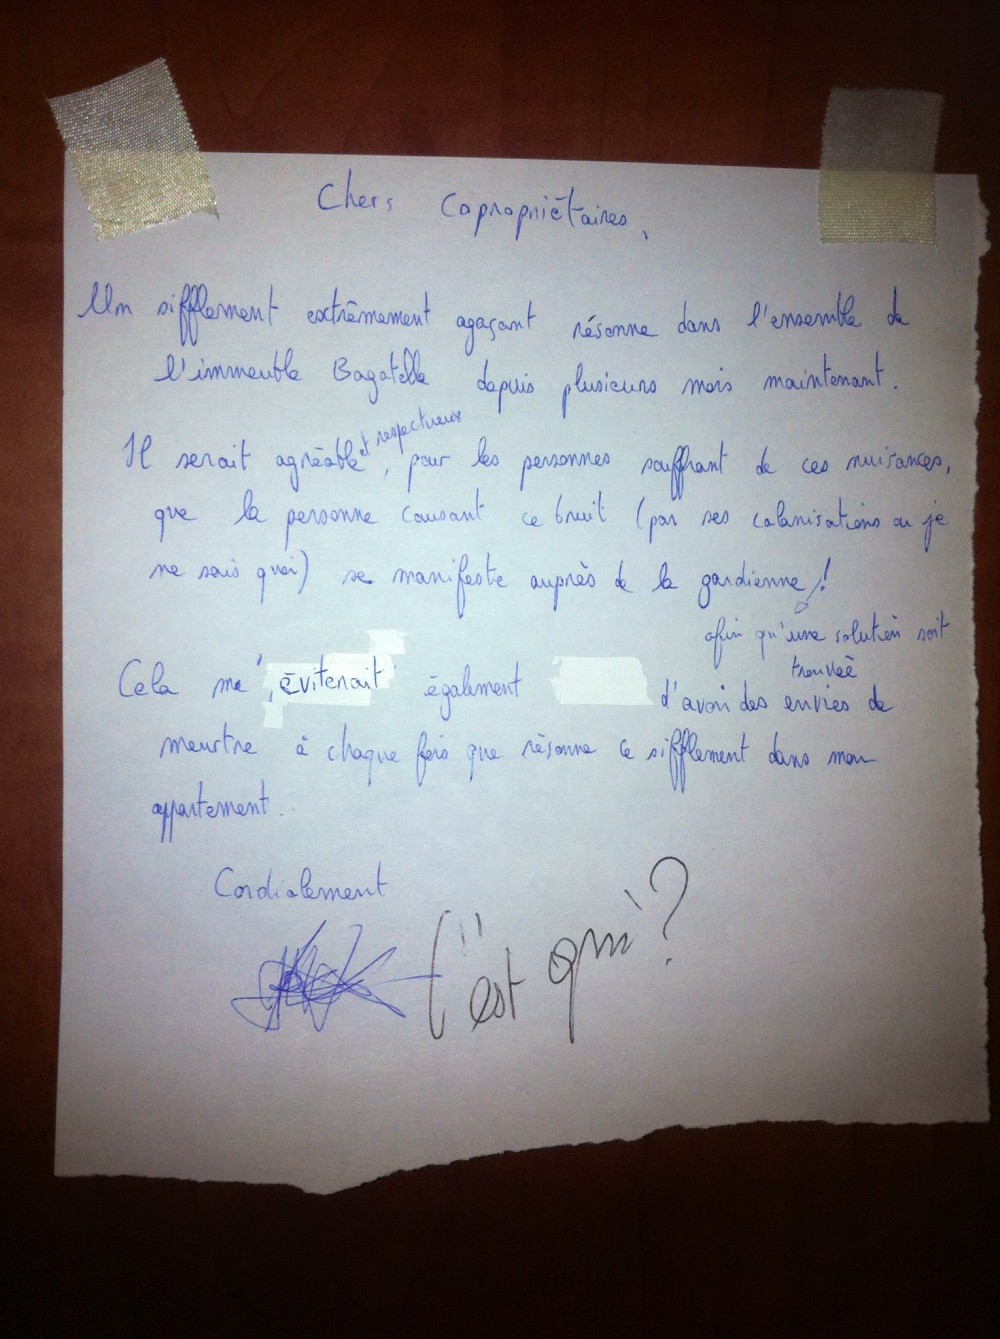 Chers Copropriétaires,
Un sifflement extrêmement agaçant résonne dans l'ensemble de
l'immeuble Bagatelle depuis plusieurs mois maintenant.
Il serait agréable et respectueux, pour les personnes souffrant de ces nuisances,
que la personne causant ce bruit (par ses canalisations ou je
ne sais quoi) se manifeste auprès de la gardienne !
afin qu'une solution soit
trouvée
Cela m'éviterait également d'avoir des envies de
meurtre à chaque fois que résonne ce sifflement dans mon
appartement.
Cordialement
C'est qui ?